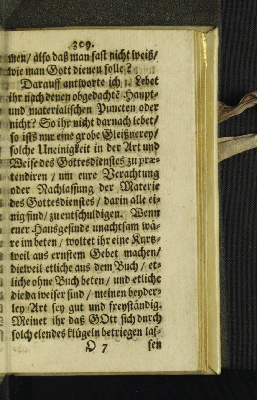 309.
men / also daß man fast nicht weiß /
wie man Gott dienen solle?
Darauff antworte ich 1. Lebet
ihr nach denen obgedachtē Haupt-
und materialischen Puncten oder
nicht? So ihr nicht darnach lebet /
so ists nur eine grobe Gleißnerey /
solche Uneinigkeit in der Art und
Weise des Gottesdienstes zu præ-
tendiren / um eure Verachtung
oder Nachlassung der Materie
des Gottesdienstes / darin alle ei-
nig sind / zu entschuldigen. Wenn
euer Haußgesinde unachtsam wä-
re im beten / woltet ihr eine Kurtz-
weil aus ernstem Gebet machen /
dieweil etliche aus dem Buch / et-
liche ohne Buch beten / und etliche
die da weiser sind / meinen beyder-
ley Art sey gut und freyständig.
Meinet ihr daß GOtt sich durch
solch elendes klügeln betriegen las-
O 7 sen